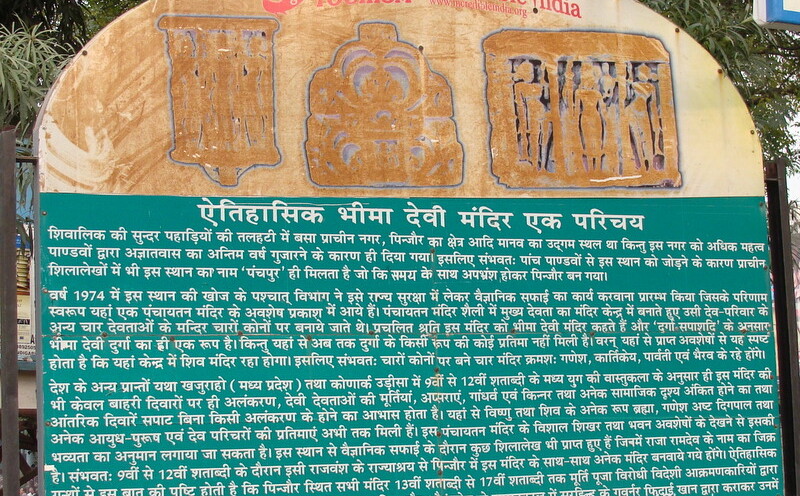 India
www.incredibleindia.org
ऐतिहासिक भीमा देवी मंदिर एक परिचय
शिवालिक की सुन्दर पहाड़ियों की तलहटी में बसा प्राचीन नगर, पिन्जौर का क्षेत्र आदि मानव का उद्गम स्थल था किन्तु इस नगर को अधिक महत्व
पाण्डवों द्वारा अज्ञातवास का अन्तिम वर्ष गुजारने के कारण ही दिया गया। इसलिए संभवतः पांच पाण्डवों से इस स्थान को जोड़ने के कारण प्राचीन
शिलालेखों में भी इस स्थान का नाम 'पंचपुर' ही मिलता है जो कि समय के साथ अपभ्रंश होकर पिन्जौर बन गया।
वर्ष 1974 में इस स्थान की खोज के पश्चात् विभाग ने इसे राज्य सुरक्षा में लेकर वैज्ञानिक सफाई का कार्य करवाना प्रारम्भ किया जिसके परिणाम
स्वरूप यहां एक पंचायतन मंदिर के अवशेष प्रकाश में आये हैं। पंचायतन मंदिर शैली में मुख्य देवता का मंदिर केन्द्र में बनाते हुए उसी देव-परिवार के
अन्य चार देवताओं के मन्दिर चारों कोनों पर बनाये जाते थे। प्रचलित श्रुति इस मंदिर को भीमा देवी मंदिर कहते हैं और 'दुर्गा सप्तशदि' के अनुसार
भीमा देवी दुर्गा का ही एक रूप है। किन्तु यहां से अब तक दुर्गा के किसी रूप की कोई प्रतिमा नहीं मिली है। वरन् यहां से प्राप्त अवशेषों से यह स्पष्ट
होता है कि यहां केन्द्र में शिव मंदिर रहा होगा। इसलिए संभवतः चारों कोनों पर बने चार मंदिर क्रमशः गणेश, कार्तिकेय, पार्वती एवं भैरव के रहे होंगे।
देश के अन्य प्रान्तों यथा खजुराहो ( मध्य प्रदेश ) तथा कोणार्क उड़ीसा में 9वीं से 12वीं शताब्दी के मध्य युग की वास्तुकला के अनुसार ही इस मंदिर की
भी केवल बाहरी दिवारों पर ही अलंकरण, देवी देवताओं की मूर्तियां, अप्सराएं, गांधर्व एवं किन्नर तथा अनेक सामाजिक दृश्य अंकित होने का तथा
आंतरिक दिवारें सपाट बिना किसी अलंकरण के होने का आभास होता है। यहां से विष्णु तथा शिव के अनेक रूप ब्रह्मा, गणेश अष्ट दिगपाल तथा
अनेक आयुध-पुरूष एवं देव परिचरों की प्रतिमाएं अभी तक मिली हैं। इस पंचायतन मंदिर के विशाल शिखर तथा भवन अवशेषों के देखने से इसकी
भव्यता का अनुमान लगाया जा सकता है। इस स्थान से वैज्ञानिक सफाई के दौरान कुछ शिलालेख भी प्राप्त हुए हैं जिनमें राजा रामदेव के नाम का जिक्र
है। संभवतः 9वीं से 12वीं शताब्दी के दौरान इसी राजवंश के राज्याश्रय से पिन्जौर में इस मंदिर के साथ-साथ अनेक मंदिर बनवाये गये होंगे। ऐतिहासिक
ग्रन्थों से इस बात की पुष्टि होती है कि पिन्जौर स्थित सभी मंदिर 13वीं शताब्दी से 17वीं शताब्दी तक मूर्ति पूजा विरोधी विदेशी आक्रमणकारियों द्वारा
सरहिन्द के गवर्नर फिदाई खान द्वारा कराकर उनमें